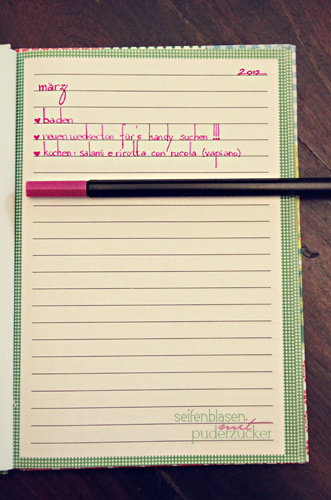 2012
märz
♥ baden
♥ neuen weckerton für's handy suchen !!!
♥ kochen: salami e ricotta con rucola (vapiano)
seifenblasen
mit
puderzucker